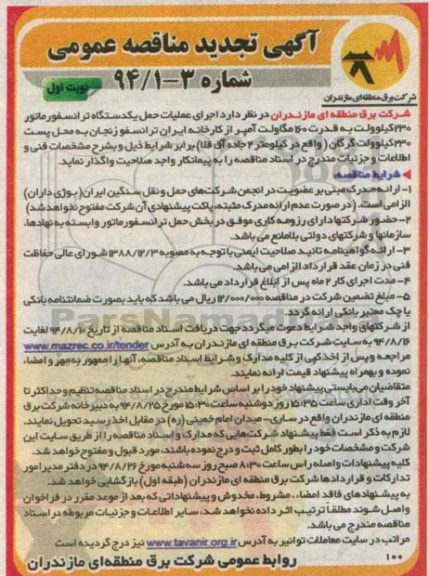 آگهی تجدید مناقصه عمومی
شماره ۳-۹۴/۱
نوبت اول
شرکت برق منطقه‌ای مازندران
شرکت برق منطقه ای مازندران در نظر دارد اجرای عملیات حمل یکدستگاه ترانسفورماتور
۲۳۰ کیلوولت به قدرت ۱۶۰ مگاولت آمپر از کارخانه ایران ترانسفو زنجان به محل پست
۲۳۰ کیلوولت گرگان (واقع در کیلومتر ۲ جاده آق قلا) برابر شرایط ذیل و بشرح مشخصات فنی و
اطلاعات و جزئیات مندرج در اسناد مناقصه را به پیمانکار واجد صلاحیت واگذار نماید.
شرایط مناقصه:
۱- ارائه مدرک مبنی بر عضویت در انجمن شرکت‌های حمل و نقل سنگین ایران (بوژی داران)
الزامی است. (در صورت عدم ارائه مدرک مثبته، پاکت پیشنهادی آن شرکت مفتوح نخواهد شد)
۲- حضور شرکتها دارای رزومه کاری موفق در بخش حمل ترانسفورماتور وابسته به نهادها،
سازمانها و شرکتهای دولتی بلامانع می باشد.
۳- ارائه گواهینامه تائید صلاحیت ایمنی با توجه به مصوبه ۱۳۸۸/۱۲/۳ شورای عالی حفاظت
فنی در زمان عقد قرارداد الزامی می باشد.
۴- مدت اجرای کار ۲ ماه پس از ابلاغ قرارداد می باشد.
۵- مبلغ تضمین شرکت در مناقصه ۱۲/۰۰۰/۰۰۰ ریال می باشد که باید بصورت ضمانتنامه بانکی
یا چک معتبر بانکی ارائه گردد.
از شرکتهای واجد شرایط دعوت میگردد جهت دریافت اسناد مناقصه از تاریخ ۹۴/۸/۱۰ لغایت
۹۴/۸/۱۶ به سایت شرکت برق منطقه ای مازندران به آدرس www.mazrec.co.ir/tender
مراجعه و پس از اخذ کپی از کلیه مدارک و شرایط اسناد مناقصه، آنها را ممهور به مهر و امضاء
نموده و بهمراه پیشنهاد قیمت ارائه نمایند.
متقاضیان می بایستی پیشنهاد خود را بر اساس شرایط مندرج در اسناد مناقصه تنظیم و حداکثر تا
آخر وقت اداری ساعت ۱۵:۳۵ روز دوشنبه ساعت ۱۵:۳۰ مورخ ۹۴/۸/۲۵ به دبیرخانه شرکت برق
منطقه ای مازندران واقع در ساری- میدان امام خمینی (ره) در مقابل اخذ رسید تحویل نمایند.
لازم به ذکر است فقط پیشنهاد شرکت‌هایی که مدارک و اسناد مناقصه را از طریق سایت این
شرکت و مشخصات خود را بطور کامل ثبت و درج نموده باشند، مورد قبول و مفتوح خواهد شد.
کلیه پیشنهادات واصله راس ساعت ۸:۳۰ صبح روز سه شنبه مورخ ۹۴/۸/۲۶ در دفتر مدیر امور
تدارکات و قراردادها شرکت برق منطقه ای مازندران (طبقه اول) بازگشایی خواهد شد.
به پیشنهادهای فاقد امضاء، مشروط، مخدوش و پیشنهاداتی که بعد از موعد مقرر در فراخوان
واصل شوند مطلقا ترتیب اثر داده نخواهد شد، سایر اطلاعات و جزئیات مربوطه در اسناد
مناقصه مندرج می باشد.
مراتب در سایت معاملات توانیر به آدرس www.tavanir.org.ir نیز درج گردیده است
۱۰۰
روابط عمومی شرکت برق منطقه‌ای مازندران
ParsNamad